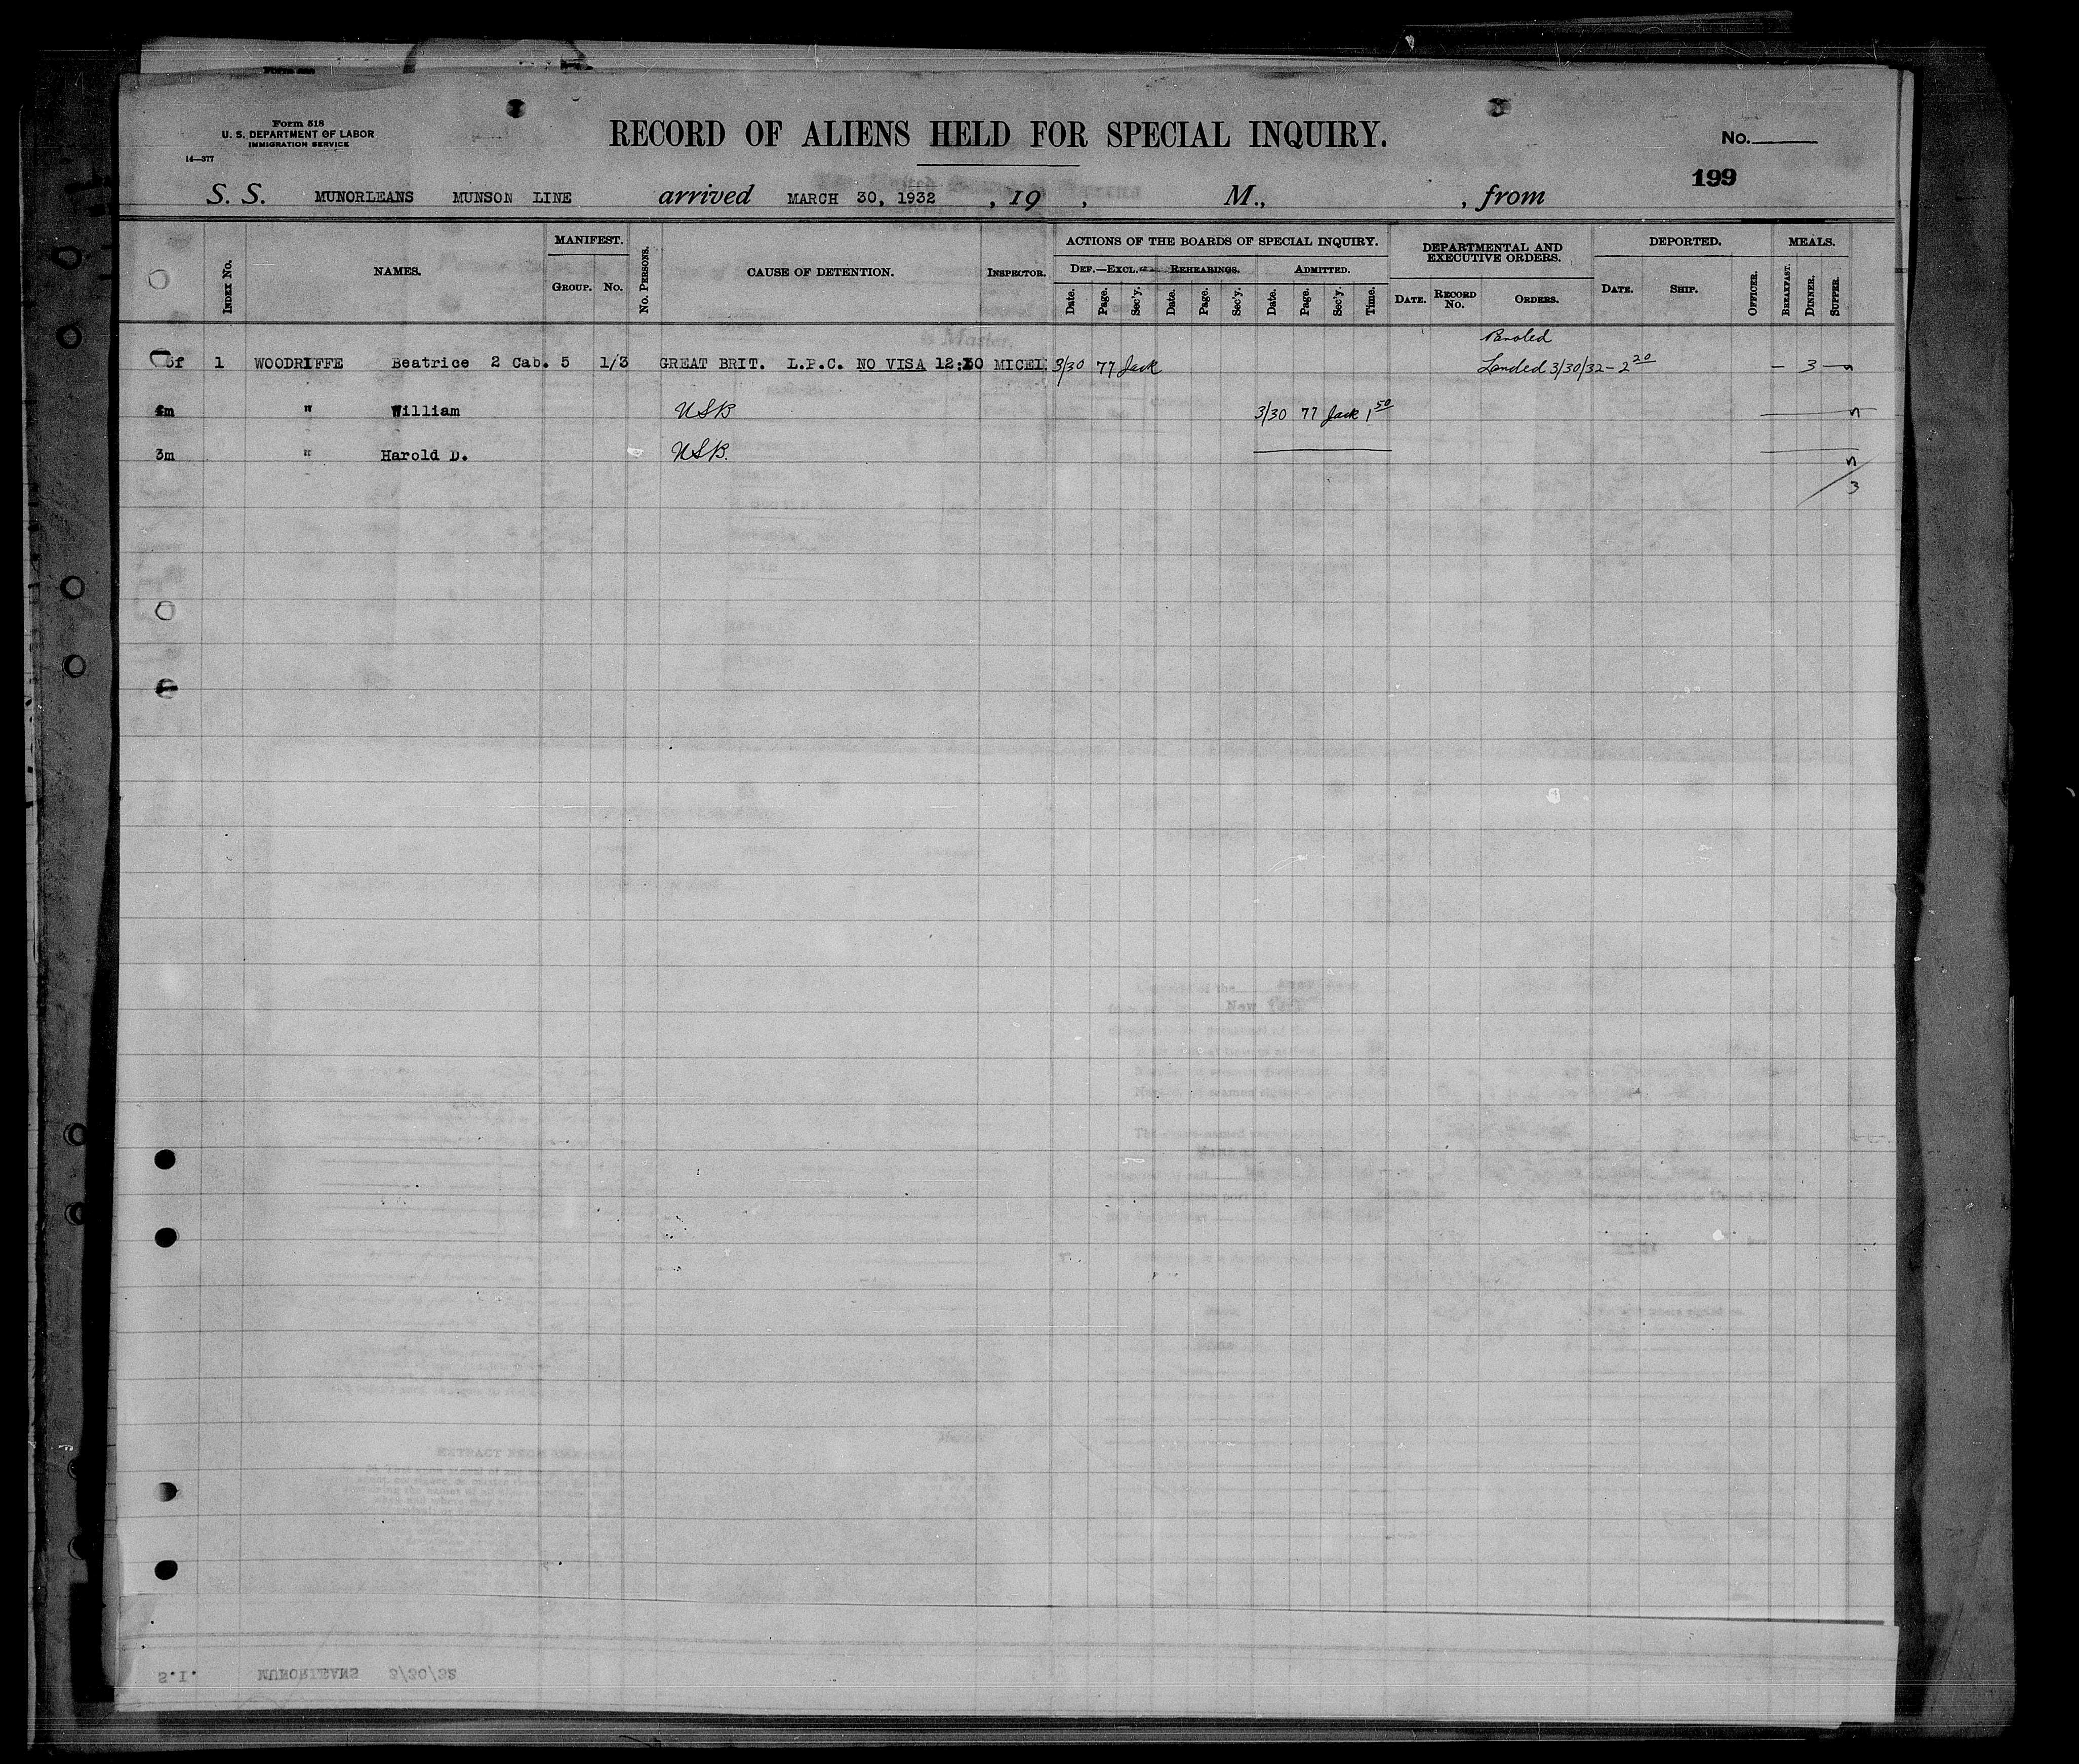 Form 518
U. S. DEPARTMENT OF LABOR
IMMIGRATION SERVICE
14—377
RECORD OF ALIENS HELD FOR SPECIAL INQUIRY.
No.
199
S. S. MUNORLEANS MUNSON LINE arrived MARCH 30, 1932 , 19 , M., , from
INDEX No. NAMES. MANIFEST. GROUP. No. No. PERSONS. CAUSE OF DETENTION. INSPECTOR. ACTIONS OF THE BOARDS OF SPECIAL INQUIRY. DEF.—EXCL. Date. Page. Sec'y. REHEARINGS. Date. Page. Sec'y. ADMITTED. Date. Page. Sec'y. Time. DEPARTMENTAL AND EXECUTIVE ORDERS. DATE. RECORD No. ORDERS. DEPORTED. DATE. SHIP. OFFICER. MEALS. BREAKFAST. DINNER. SUPPER.
Paroled
1 WOODRIFFE Beatrice 2 Cab. 5 1/3 GREAT BRIT. L.P.C. NO VISA MICEL 3/30 77 Jack Landed 3/30/32 – 2 20 — 3 —
4m " William USB 3/30 77 Jack 1 50
3m " Harold D. USB.
3
S.I. MUNORLEANS 3/30/32